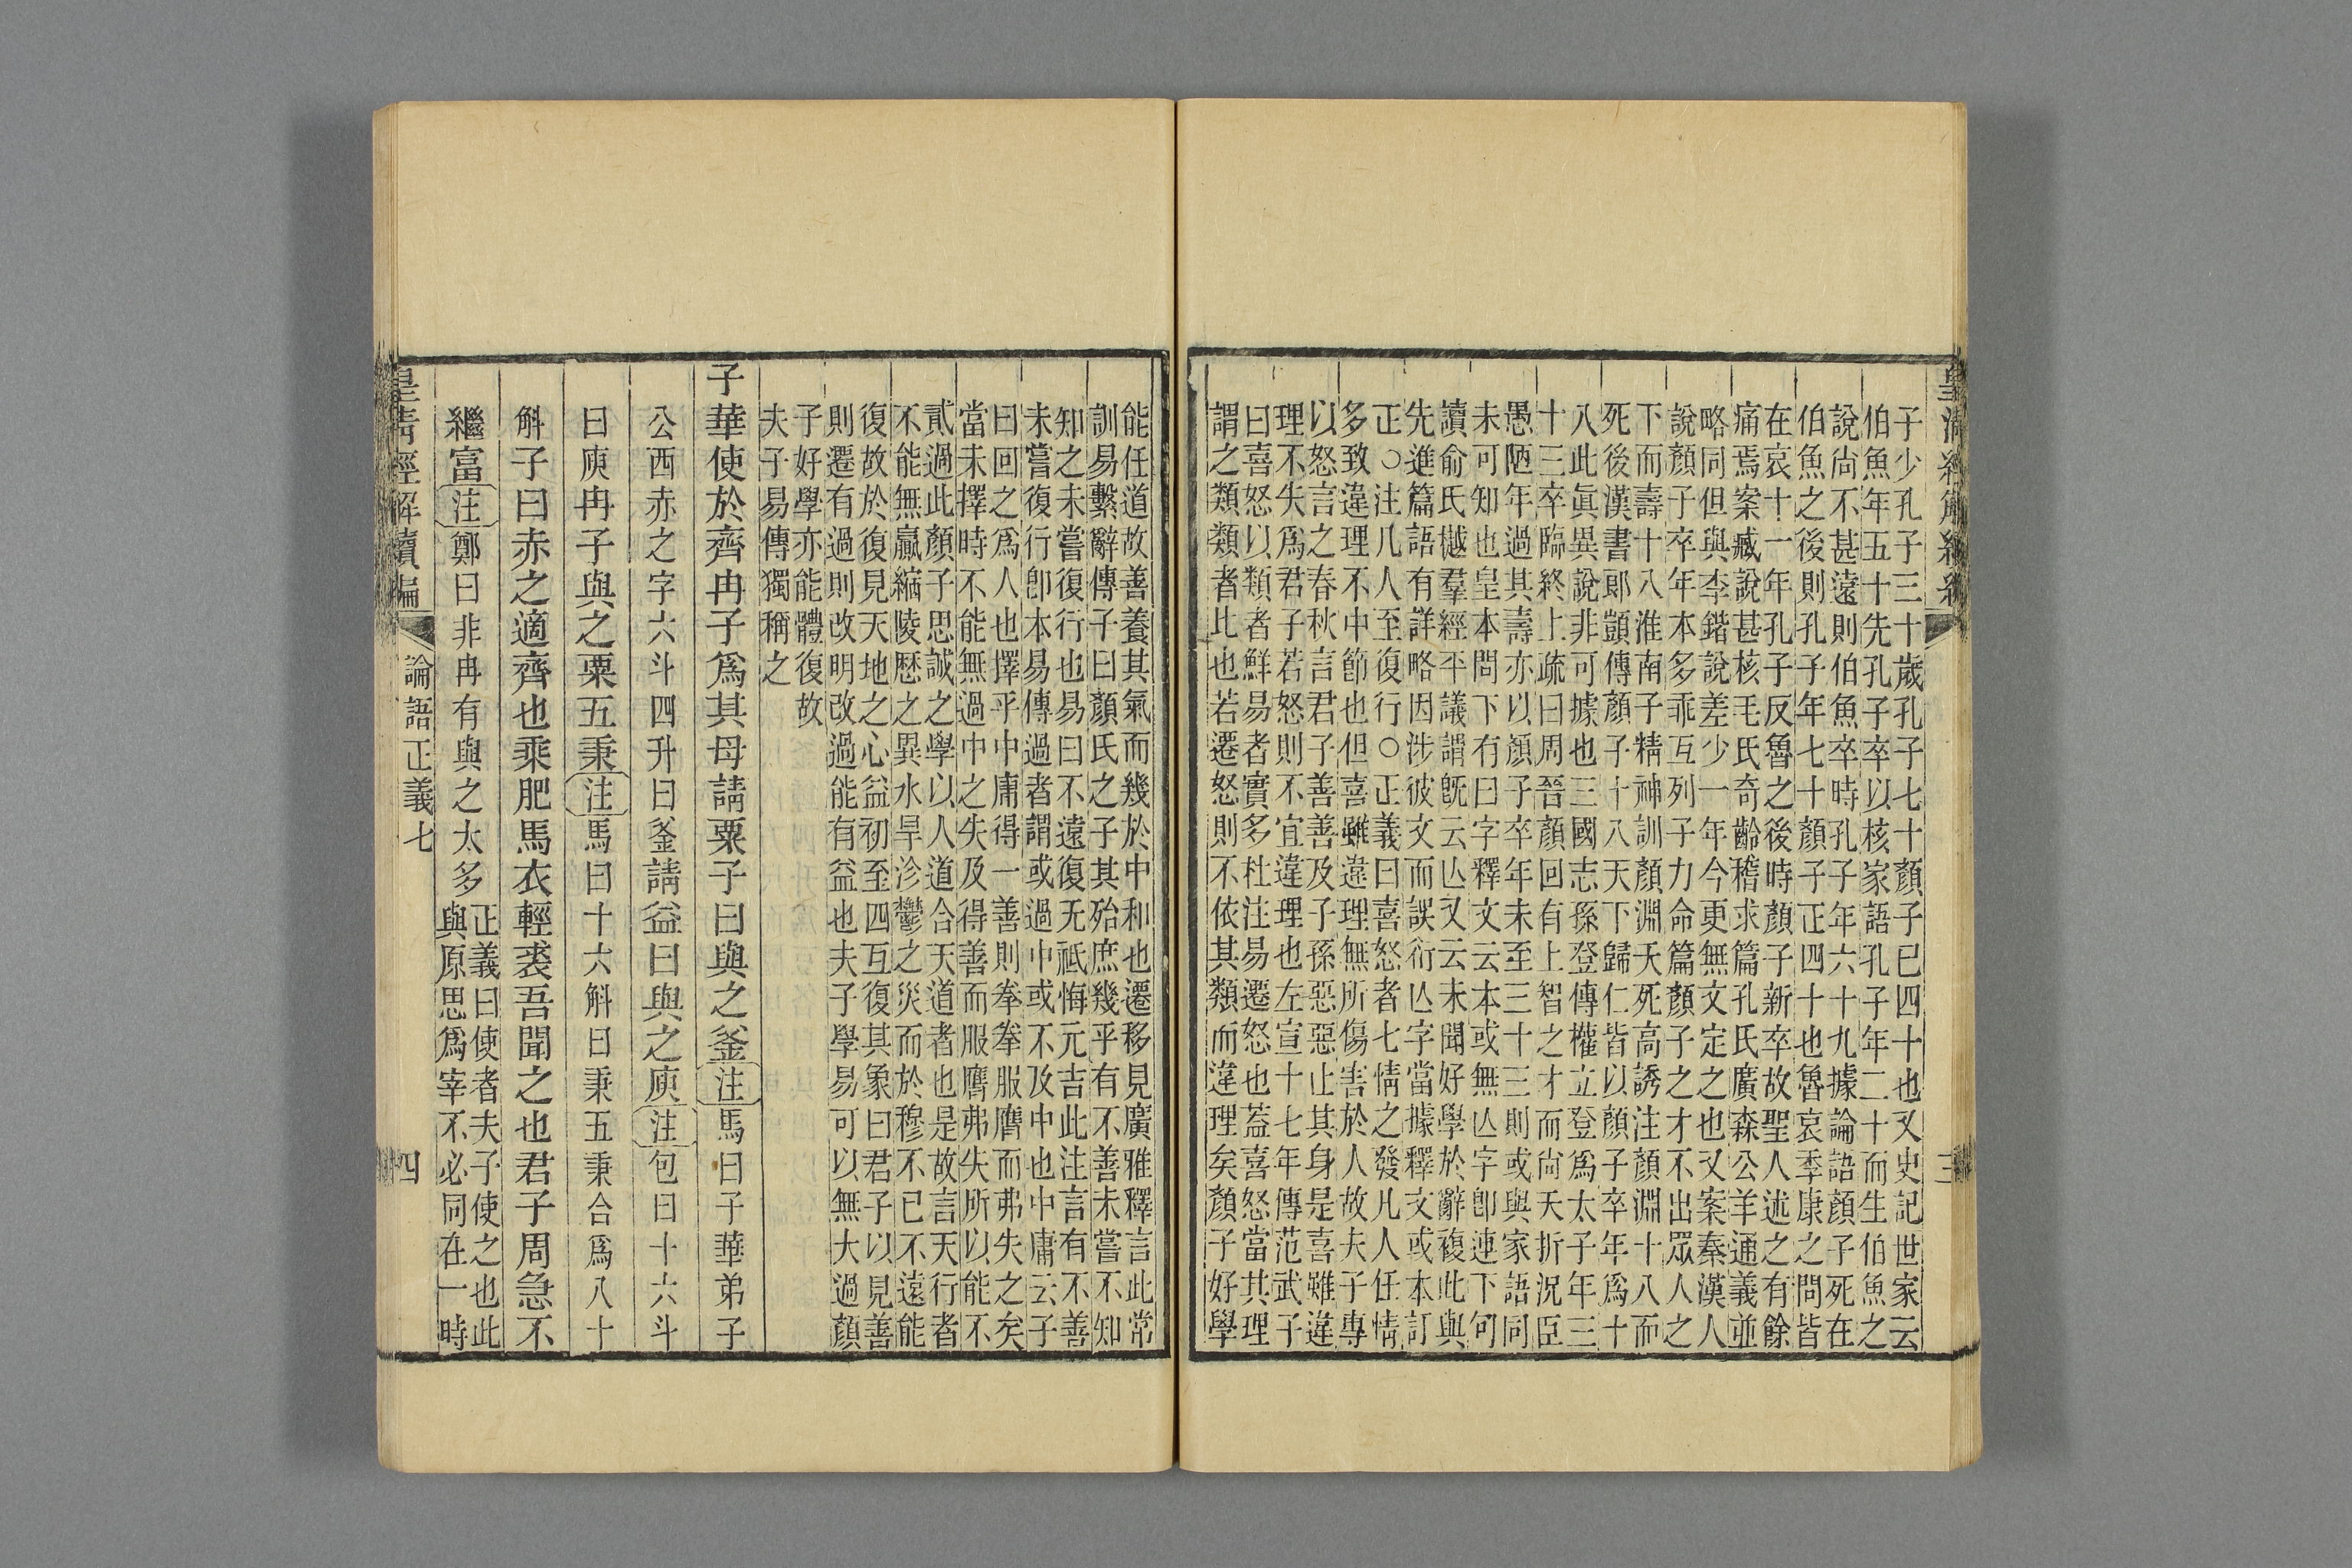 皇清經解續編 三
子少孔子三十歲孔子七十顏子已四十也又史記世家云
伯魚年五十先孔子卒以核家語孔子年二十而生伯魚之
說尙不甚遠則伯魚卒時孔子年六十九據論語顏子死在
伯魚之後則孔子年七十顏子正四十也魯哀季康之問皆
在哀十一年孔子反魯之後時顏子新卒故聖人述之有餘
痛焉案臧說甚核毛氏奇齡稽求篇孔氏廣森公羊通義並
略同但與李鍇說差少一年今更無文定之也又案秦漢人
說顏子卒年本多乖互列子力命篇顏子之才不出眾人之
下而壽十八淮南子精神訓顏淵夭死高誘注顏淵十八而
死後漢書郞顗傳顏子十八天下歸仁皆以顏子卒年爲十
八此眞異說非可據也三國志孫登傳權立登爲太子年三
十三卒臨終上疏曰周晉顏回有上智之才而尙夭折況臣
愚陋年過其壽亦以顏子卒年未至三十三則或與家語同
未可知也皇本問下有曰字釋文云本或無亾字卽連下句
讀俞氏樾羣經平議謂旣云亾又云未聞好學於辭複此與
先進篇語有詳略因涉彼文而誤衍亾字當據釋文或本訂
正○注凡人至復行○正義曰喜怒者七情之發凡人任情
多致違理不中節也但喜雖違理無所傷害於人故夫子專
以怒言之春秋言君子善善及子孫惡惡止其身是喜雖違
理不失爲君子若怒則不宜違理也左宣十七年傳范武子
曰喜怒以類者鮮易者實多杜注易遷怒也蓋喜怒當其理
謂之類類者此也若遷怒則不依其類而違理矣顏子好學
能任道故善養其氣而幾於中和也遷移見廣雅釋言此常
訓易繫辭傳子曰顏氏之子其殆庶幾乎有不善未嘗不知
知之未嘗復行也易曰不遠復无祗悔元吉此注言有不善
未嘗復行卽本易傳過者謂或過中或不及中也中庸云子
曰回之爲人也擇乎中庸得一善則拳拳服膺而弗失之矣
當未擇時不能無過中之失及得善而服膺弗失所以能不
貳過此顏子思誠之學以人道合天道者也是故言天行者
不能無贏縮陵歷之異水旱沴鬱之災而於穆不已不遠能
復故於復見天地之心益初至四互復其象曰君子以見善
則遷有過則改明改過能有益也夫子學易可以無大過顏
子好學亦能體復故
夫子易傳獨稱之
子華使於齊冉子爲其母請粟子曰與之釜注馬曰子華弟子
公西赤之字六斗四升曰釜請益曰與之庾注包曰十六斗
曰庾冉子與之粟五秉注馬曰十六斛曰秉五秉合爲八十
斛子曰赤之適齊也乘肥馬衣輕裘吾聞之也君子周急不
繼富注鄭曰非冉有與之太多
正義曰使者夫子使之也此
與原思爲宰不必同在一時
皇清經解續編 論語正義七 四